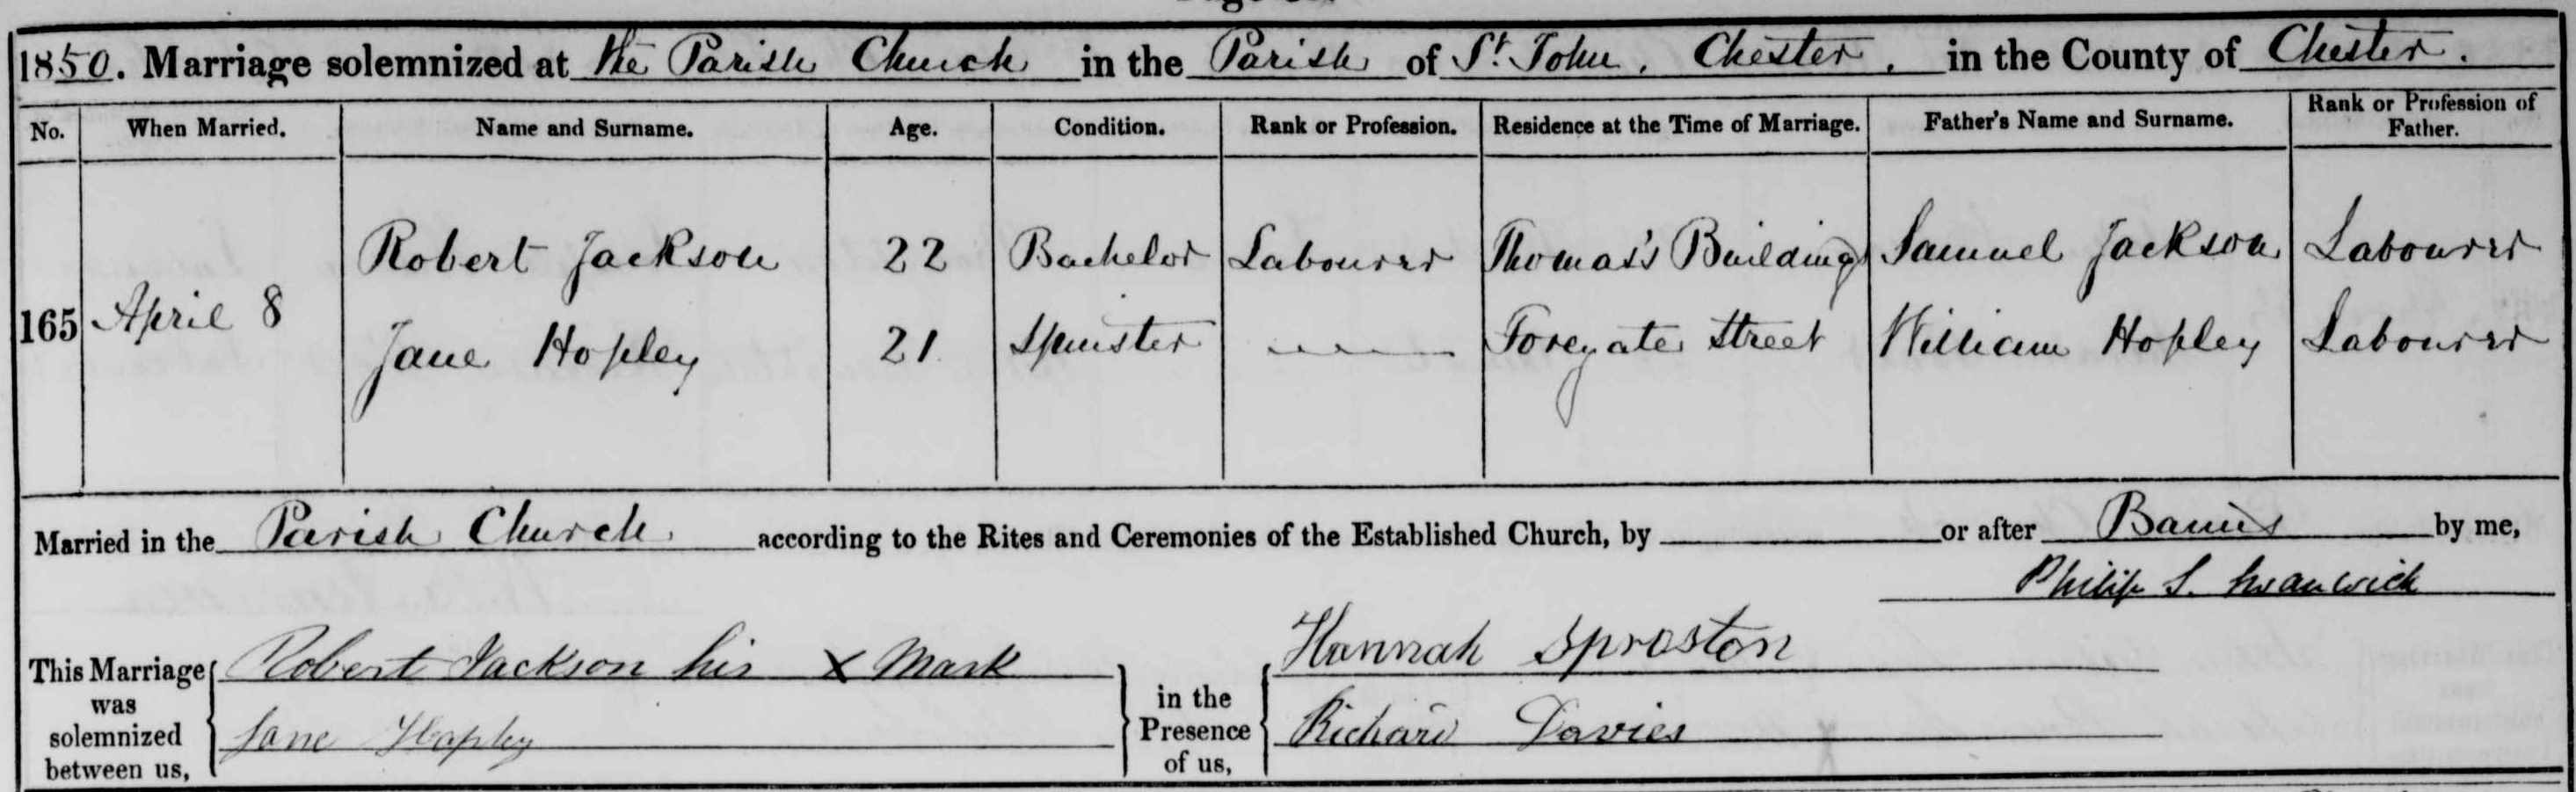 1850. Marriage solemnized at the Parish Church in the Parish of St. John, Chester, in the County of Chester.
No. When Married. Name and Surname. Age. Condition. Rank or Profession. Residence at the Time of Marriage. Father's Name and Surname. Rank or Profession of Father.
Robert Jackson 22 Bachelor Labourer Thomas's Buildings Samuel Jackson Labourer
165 April 8
Jane Hopley 21 Spinster Foregate Street William Hopley Labourer
Married in the Parish Church according to the Rites and Ceremonies of the Established Church, by or after Banns by me,
Philip S. Swanwick
This Marriage was solemnized between us, Robert Jackson his X Mark
Jane Hopley
in the Presence of us, Hannah Sproston
Richard Davies